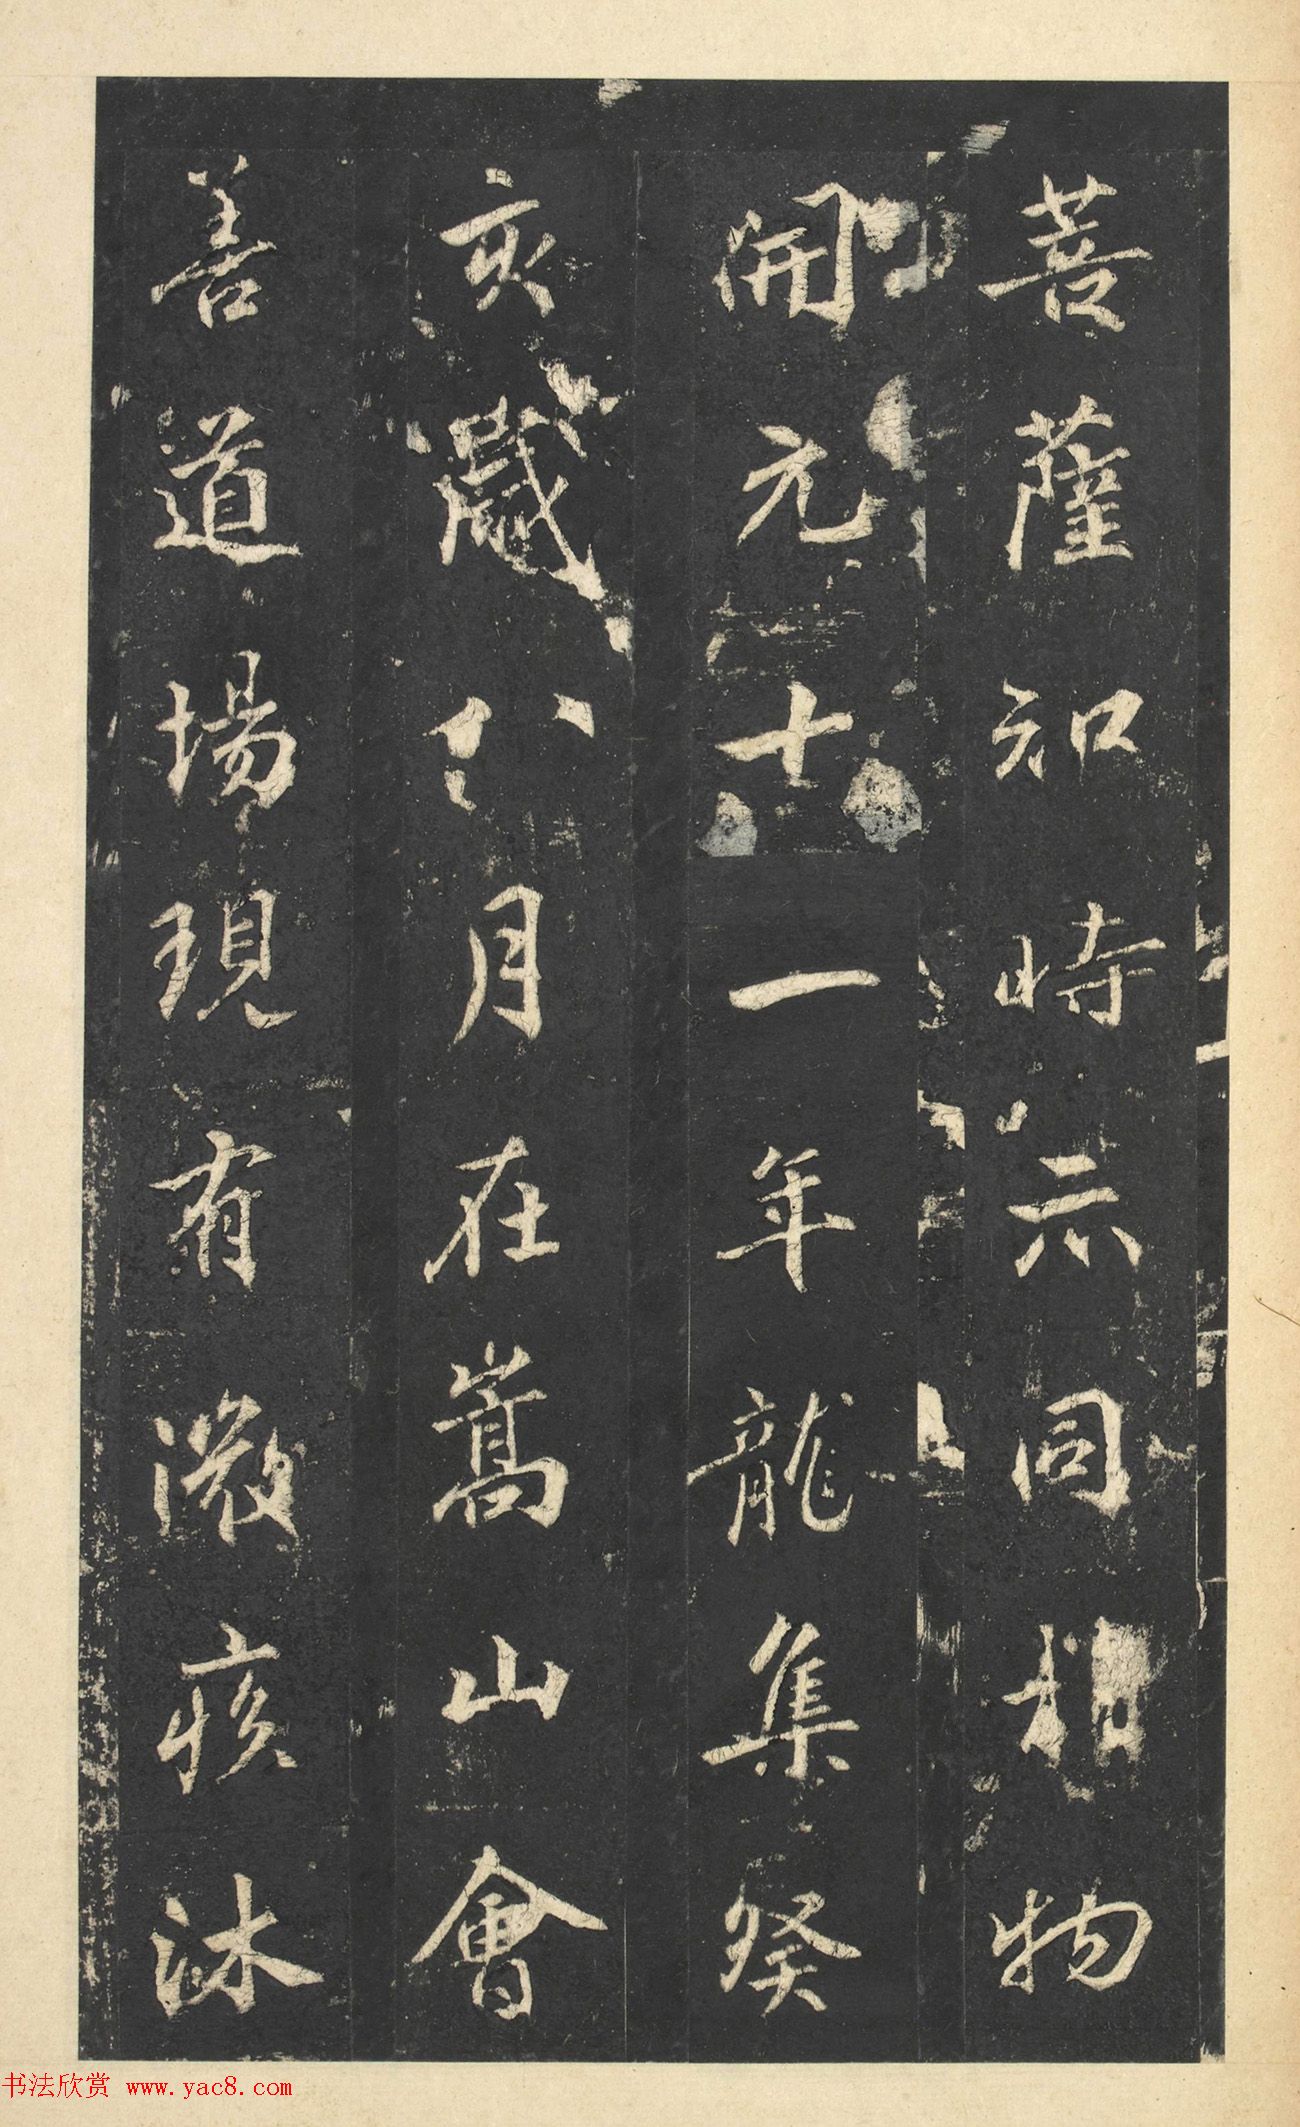 菩薩知時示同相物
開元十一年龍集癸
亥歲八月在嵩山會
善道場現有微疾沐
书法欣赏 www.yac8.com